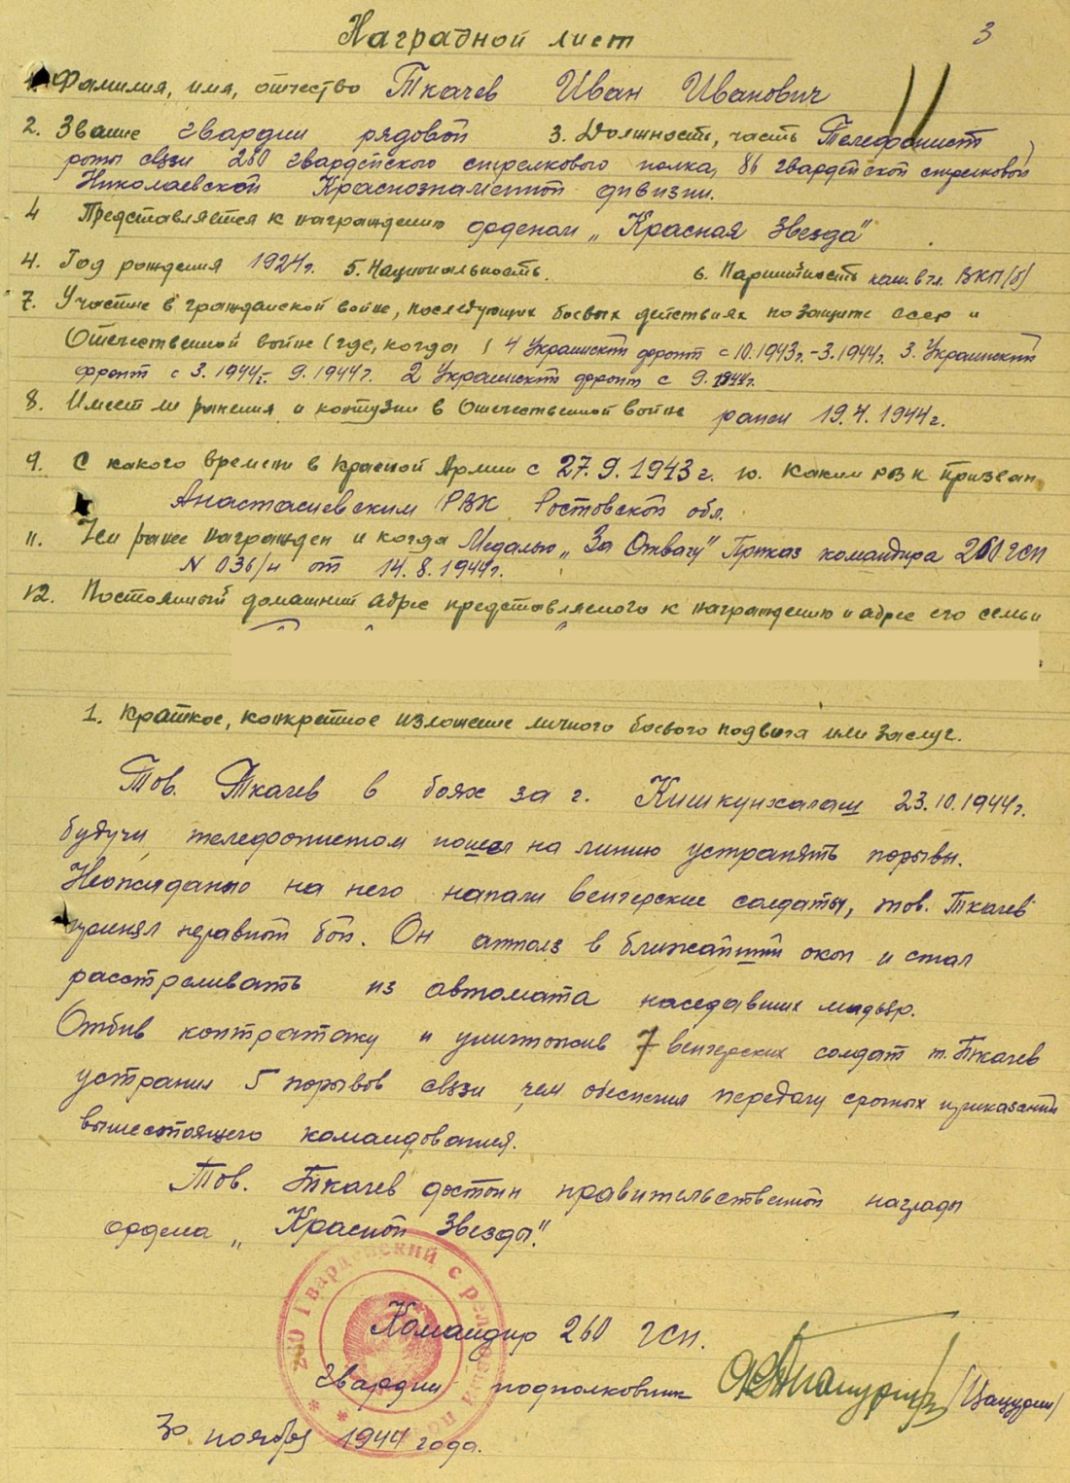 Наградной лист
3
1. Фамилия, имя, отчество Ткачев Иван Иванович
2. Звание гвардии рядовой 3. Должность, часть Телефонист
роты связи 260 гвардейского стрелкового полка, 86 гвардейской стрелковой
Николаевской Краснознаменной дивизии.
4 Представляется к награждению орденом „Красная Звезда"
4. Год рождения 1924г. 5. Национальность. 6. Партийность канд. в чл. ВКП(б)
7. Участие в гражданской войне, последующих боевых действиях по защите СССР и
Отечественной войне (где, когда) 4 Украинский фронт с 10.1943г.-3.1944г. 3. Украинский
фронт с 3.1944г.- 9.1944г. 2 Украинский фронт с 9.1944г.
8. Имеет ли ранения и контузии в Отечественной войне ранен 19.4.1944г.
9. С какого времени в Красной Армии с 27.9.1943г. 10. Каким РВК призван
Анастасиевским РВК Ростовской обл.
11. Чем ранее награжден и когда Медалью „За Отвагу" Приказ командира 260 гсп
N 036/н от 14.8.1944г.
12. Постоянный домашний адрес представляемого к награждению и адрес его семьи
1. Краткое, конкретное изложение личного боевого подвига или заслуг.
Тов. Ткачев в боях за г. Кишкунхалаш 23.10.1944г.
будучи телефонистом пошел на линию устранять порывы.
Неожиданно на него напали венгерские солдаты, тов. Ткачев
принял неравный бой. Он отполз в ближайший окоп и стал
расстреливать из автомата наседавших мадьяр.
Отбив контратаку и уничтожив 7 венгерских солдат т. Ткачев
устранил 5 порывов связи чем обеспечил передачу срочных приказаний
вышестоящего командования.
Тов. Ткачев достоин правительственной награды
ордена „Красной Звезды".
260 Гвардейский стрелковый по
Командир 260 гсп.
Гвардии подполковник /Цацурин/
30 ноября 1944 года.